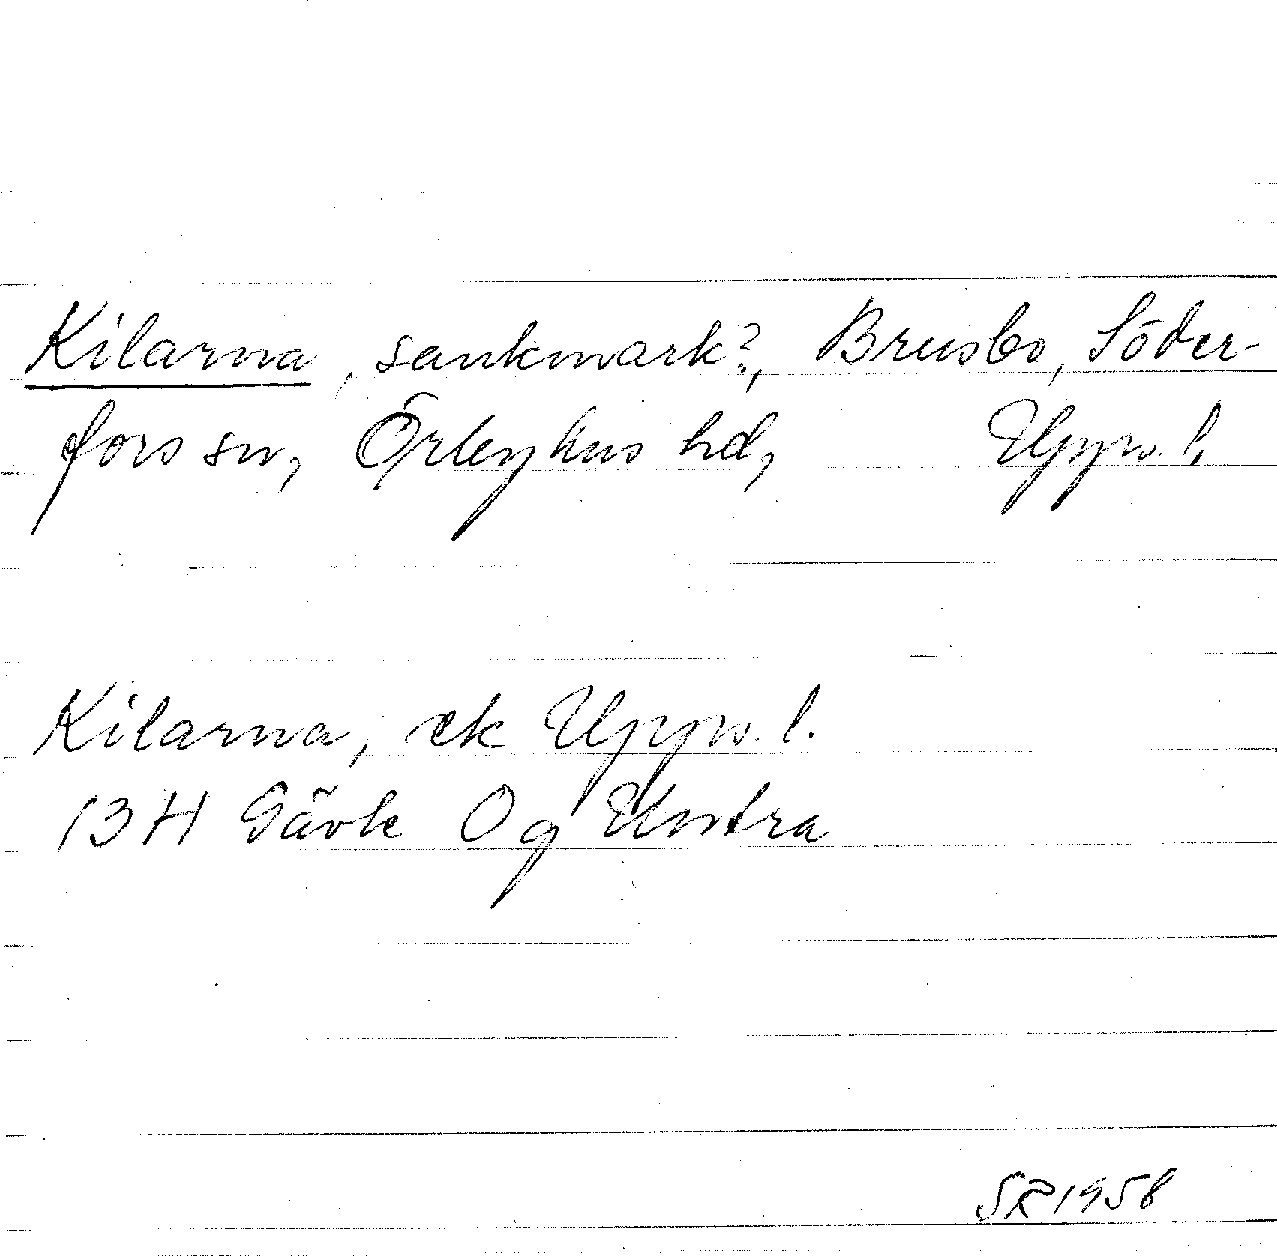 Kilarna, sankmark?, Brusbo, Söder-
fors sn, Örbyhus hd, Upps. l.
Kilarna, ek Upps. l.
13 H Gävle 0 g Untra
SR 1958